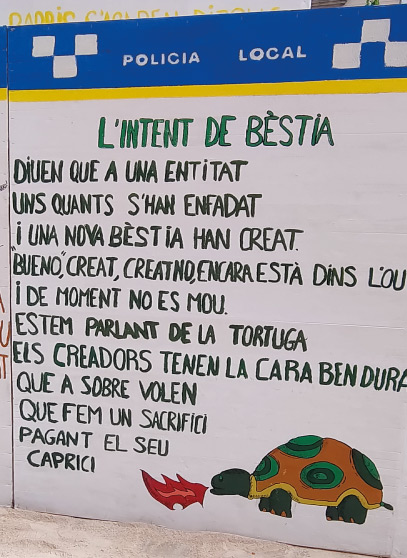 POLICIA LOCAL
L'INTENT DE BÈSTIA
DIUEN QUE A UNA ENTITAT
UNS QUANTS S'HAN ENFADAT
I UNA NOVA BÈSTIA HAN CREAT.
"BUENO", CREAT, CREAT NO, ENCARA ESTÀ DINS L'OU
I DE MOMENT NO ES MOU.
ESTEM PARLANT DE LA TORTUGA
ELS CREADORS TENEN LA CARA BEN DURA
QUE A SOBRE VOLEN
QUE FEM UN SACRIFICI
PAGANT EL SEU
CAPRICI